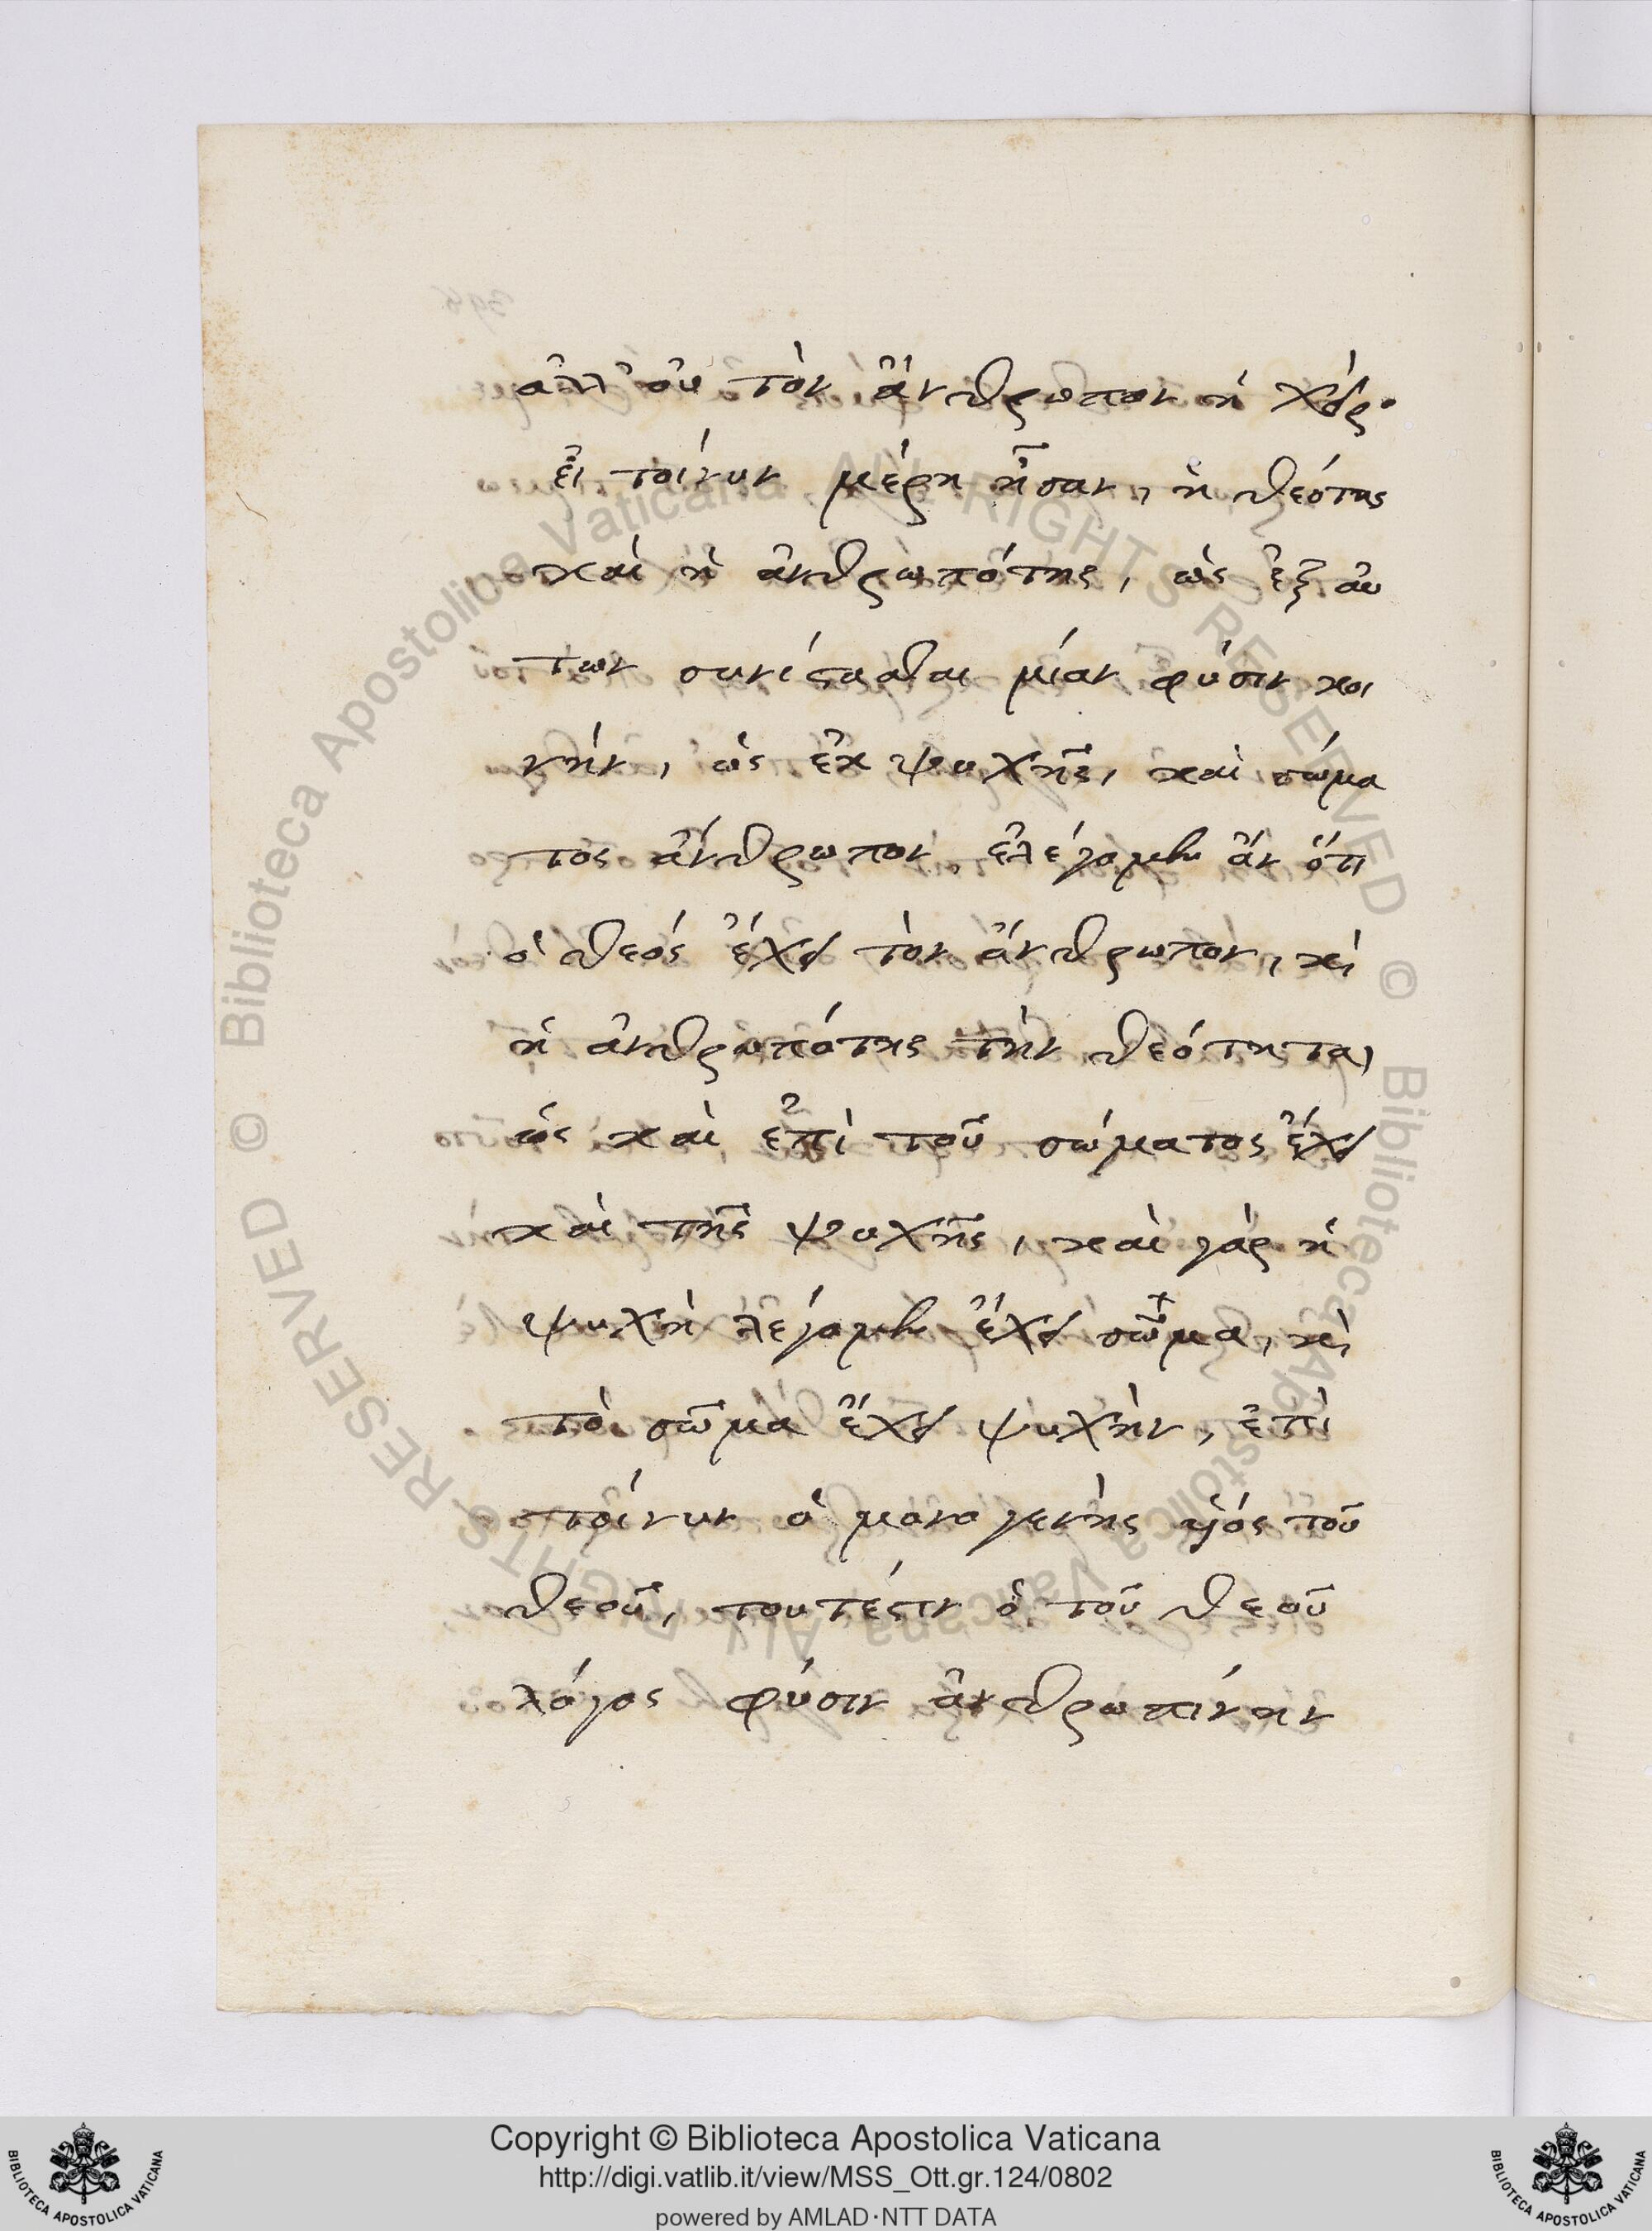 ἀλλ' οὐ τὸν ἄνθρωπον ἡ χείρ·
εἰ τοίνυν μέρη ἦσαν, ἡ θεότης
καὶ ἡ ἀνθρωπότης, ὡς ἐξ αυ
των συνίστασθαι μίαν φύσιν κοι
νήν, ὡς ἐκ ψυχῆς, καὶ σώμα
τος ἄνθρωπον, ἐλέγομεν ἂν ὅτι
ὁ θεός ἔχει τὸν ἄνθρωπον, καὶ
ἡ ἀνθρωπότης τὴν θεότητα,
ὡς καὶ ἐπὶ τοῦ σώματος ἔχει
καὶ τῆς ψυχῆς, καὶ γὰρ ἡ
ψυχὴ λέγομεν ἔχει σῶμα, καὶ
τὸ σῶμα ἔχει ψυχὴν, ἐπὶ
τοίνυν ὁ μονογενὴς υἱός τοῦ
θεοῦ, τουτέστιν ὁ τοῦ θεοῦ
λόγος φύσιν ἀνθρωπίνην
© Biblioteca Apostolica Vaticana ALL RIGHTS RESERVED
© Biblioteca Apostolica Vaticana ALL RIGHTS RESERVED
BIBLIOTECA APOSTOLICA VATICANA
Copyright © Biblioteca Apostolica Vaticana
http://digi.vatlib.it/view/MSS_Ott.gr.124/0802
powered by AMLAD·NTT DATA
BIBLIOTECA APOSTOLICA VATICANA